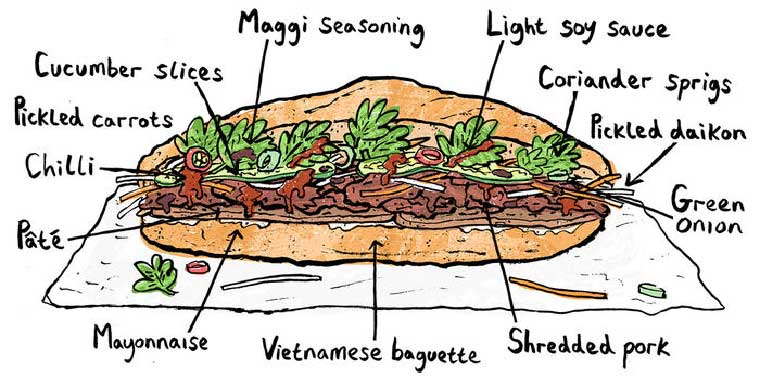 Maggi Seasoning
Light soy sauce
Cucumber slices
Coriander sprigs
Pickled carrots
Pickled daikon
Chilli
Green
onion
Pâté
Mayonnaise
Vietnamese baguette
Shredded pork